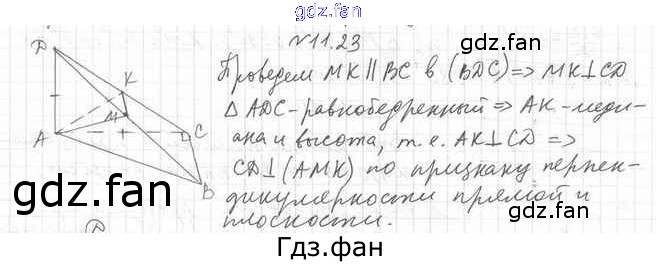 gdz.fan
№11.23
gdz.fan
Проведем MK∥BC в (BDC) => MK⊥CD
△ADC - равнобедренный => AK - меди-
ана и высота, т.е. AK⊥CD =>
CD⊥(AMK) по признаку перпен-
дикулярности прямой и
плоскости.
D
K
M
A
C
B
gdz.fan
gdz.fan
Гдз.фан